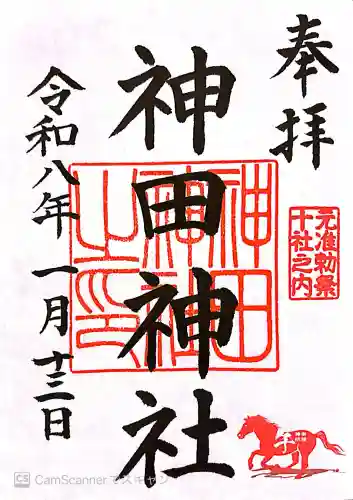 奉拝
神田神社
元准勅祭
十社之内
神田
神社
之印
令和八年 一月十三日
CS CamScanner でスキャン